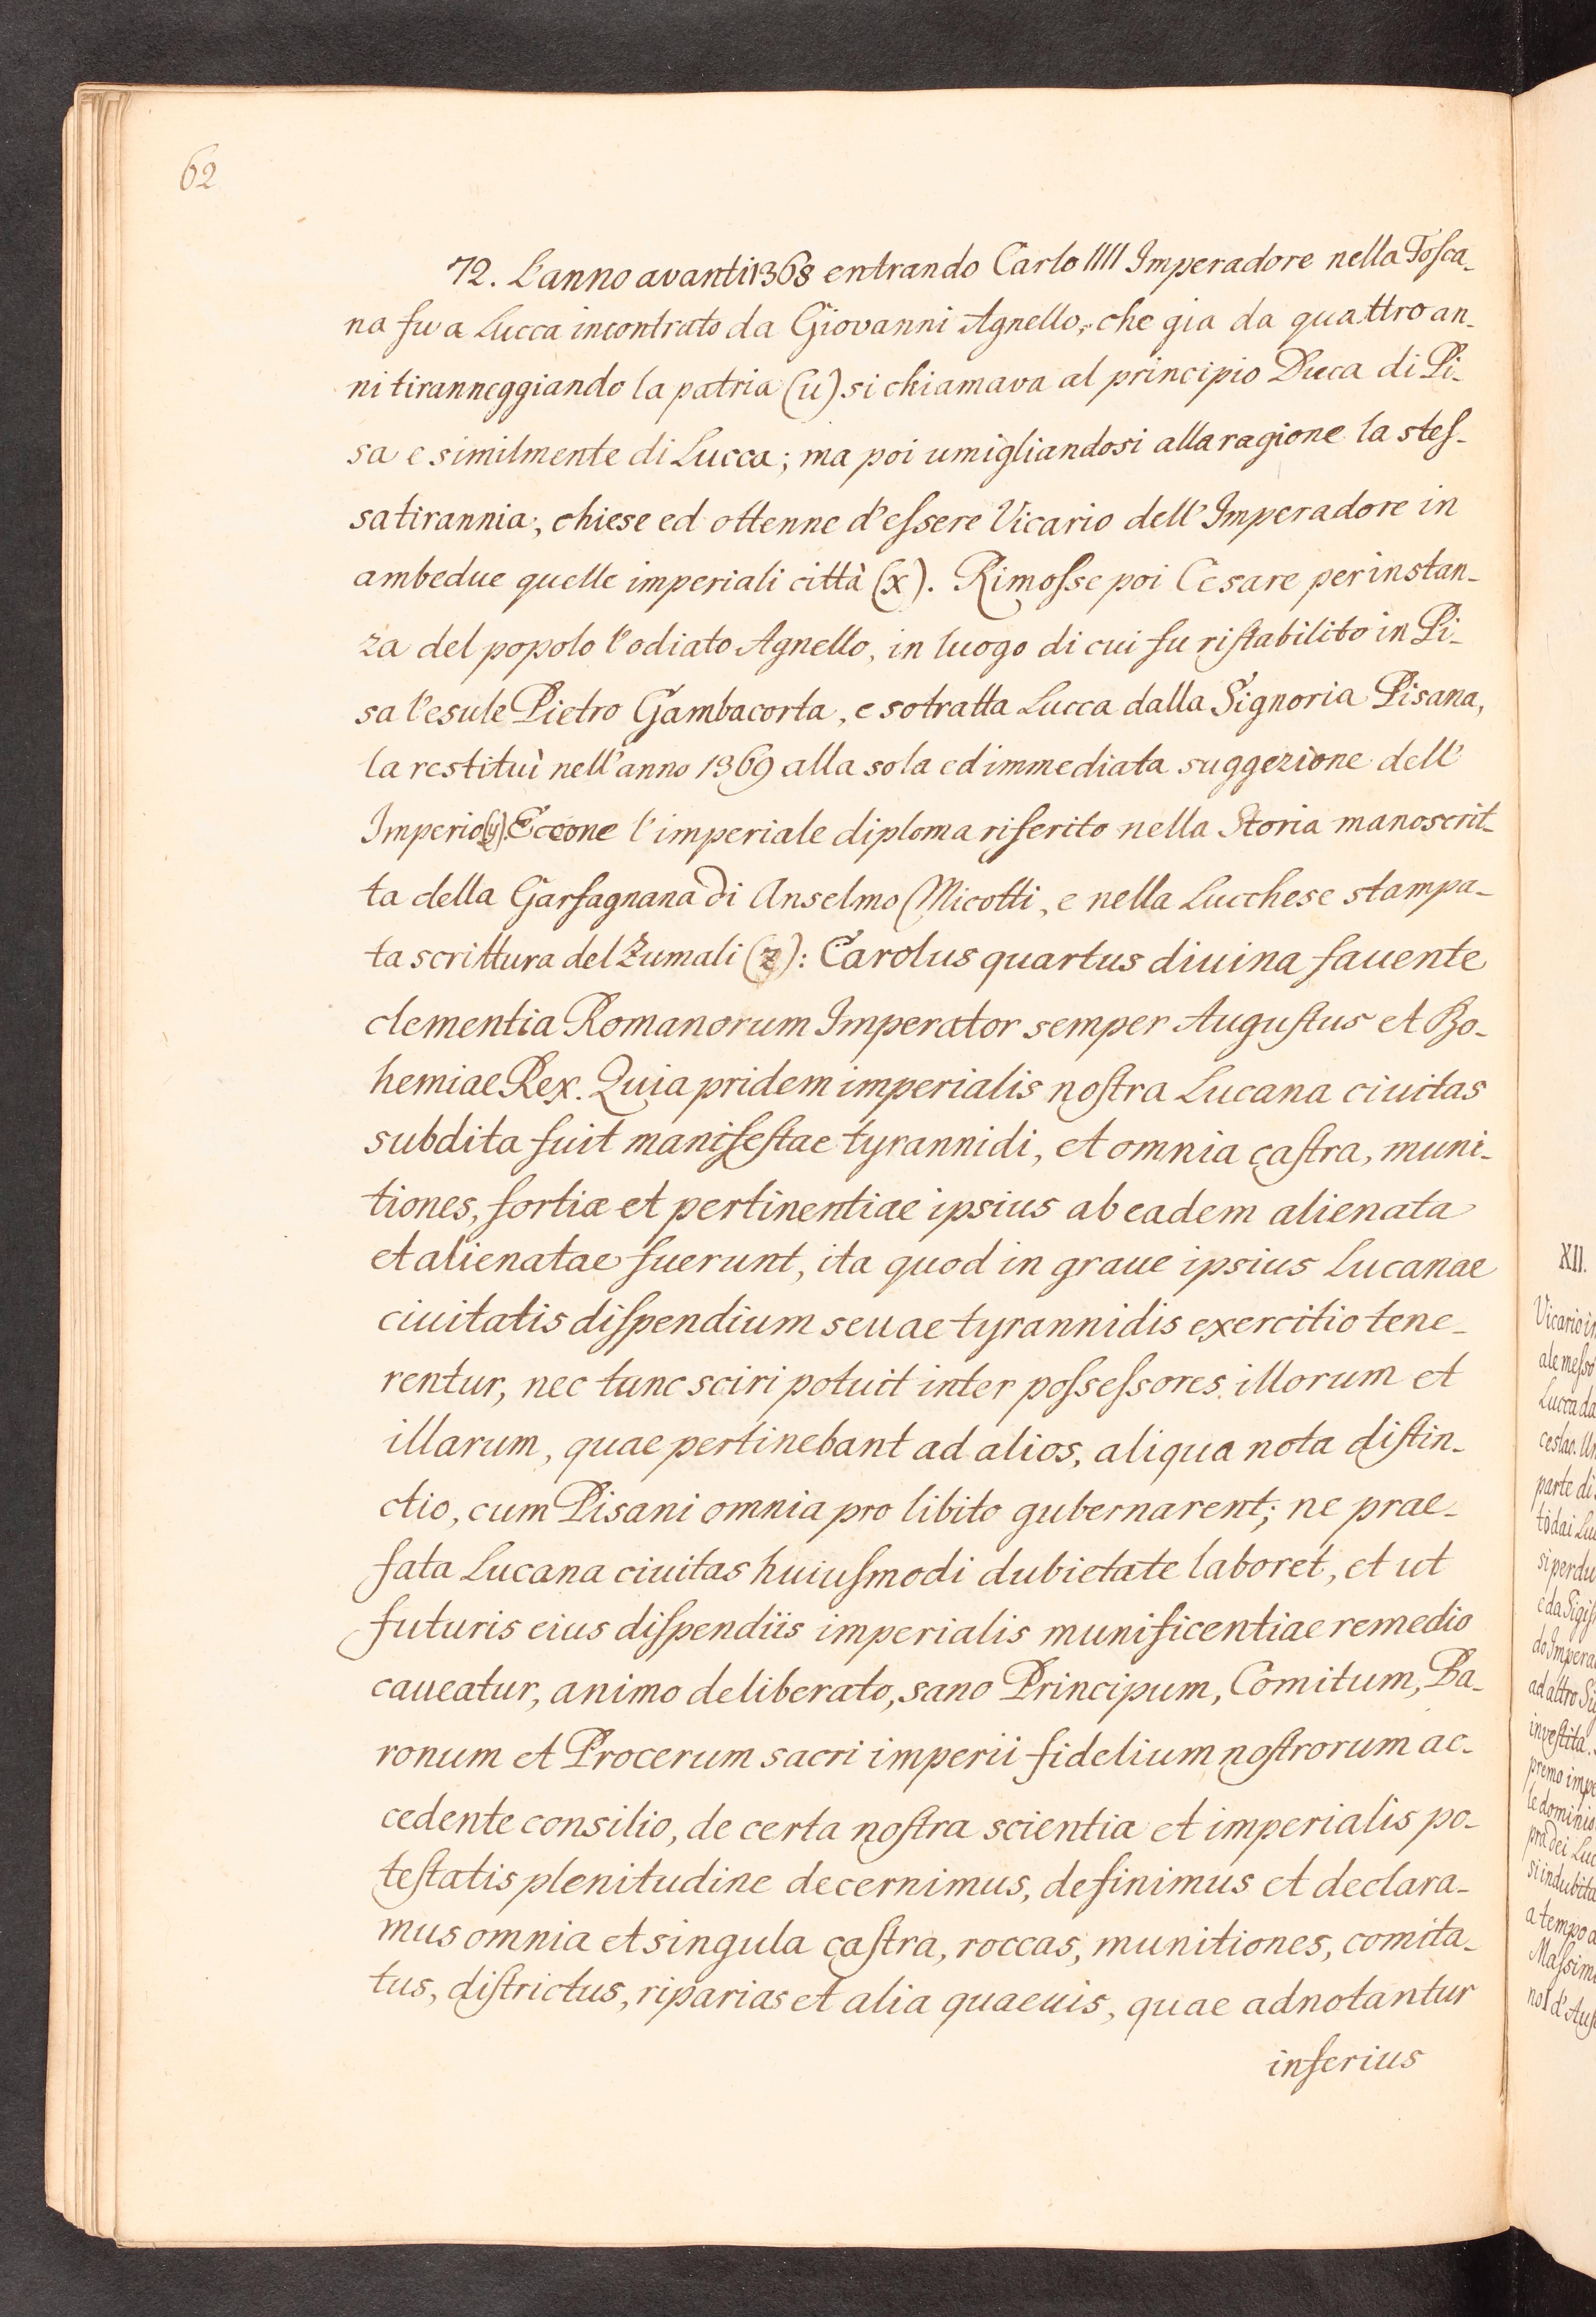 62
72. L'anno avanti 1368 entrando Carlo IIII Imperadore nella Tosca-
na fu a Lucca incontrato da Giovanni Agnello, che gia da quattro an-
ni tiranneggiando la patria (u) si chiamava al principio Duca di Pi-
sa e similmente di Lucca; ma poi umigliandosi alla ragione la stes-
sa tirannia, chiese ed ottenne d'essere Vicario dell'Imperadore in
ambedue quelle imperiali città (x). Rimosse poi Cesare per instan-
za del popolo l'odiato Agnello, in luogo di cui fu ristabilito in Pi-
sa l'esule Pietro Gambacorta, e sotratta Lucca dalla Signoria Pisana,
la restituì nell'anno 1369 alla sola ed immediata suggezione dell'
Imperio (y). Eccone l'imperiale diploma riferito nella Storia manoscrit-
ta della Garfagnana di Anselmo Micotti, e nella Lucchese stampa-
ta scrittura del Zumali (z): Carolus quartus diuina fauente
clementia Romanorum Imperator semper Augustus et Bo-
hemiae Rex. Quia pridem imperialis nostra Lucana ciuitas
subdita fuit manifestae tyrannidi, et omnia castra, muni-
tiones, fortiæ et pertinentiae ipsius ab eadem alienata
et alienatae fuerunt, ita quod in graue ipsius Lucanae
ciuitatis dispendium seuae tyrannidis exercitio tene-
rentur, nec tunc sciri potuit inter possessores illorum et
illarum, quae pertinebant ad alios, aliqua nota distin-
ctio, cum Pisani omnia pro libito gubernarent; ne prae-
fata Lucana ciuitas huiusmodi dubietate laboret, et ut
futuris eius dispendiis imperialis munificentiae remedio
caueatur, animo deliberato, sano Principum, Comitum, Ba-
ronum et Procerum sacri imperii fidelium nostrorum ac-
cedente consilio, de certa nostra scientia et imperialis po-
testatis plenitudine decernimus, definimus et declara-
mus omnia et singula castra, roccas, munitiones, comita-
tus, districtus, riparias et alia quaeuis, quae adnotantur
inferius
XII.
Vicario
ale messo
Lucca da
parte di
si perdu
e da Sigis
do Impera
ad altro
investita
premo impe
le dominio
si indubita
a tempo
Massimi